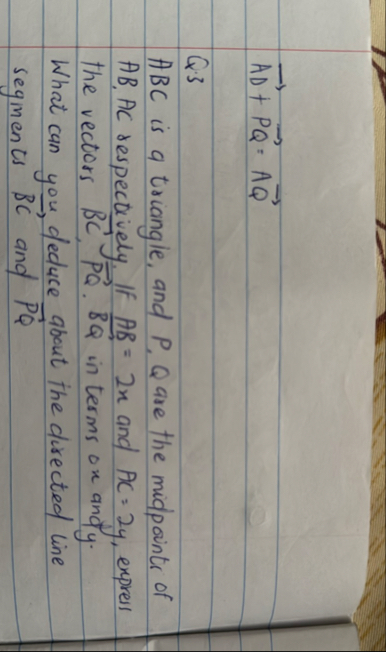 AD + PQ = AQ
Q.3
ABC is a triangle, and P, Q are the midpoints of
AB, AC respectively. If AB = 2x and AC = 2y, express
the vectors BC, PQ. BQ in terms ox and y.
What can you deduce about the directed line
segments BC and PQ